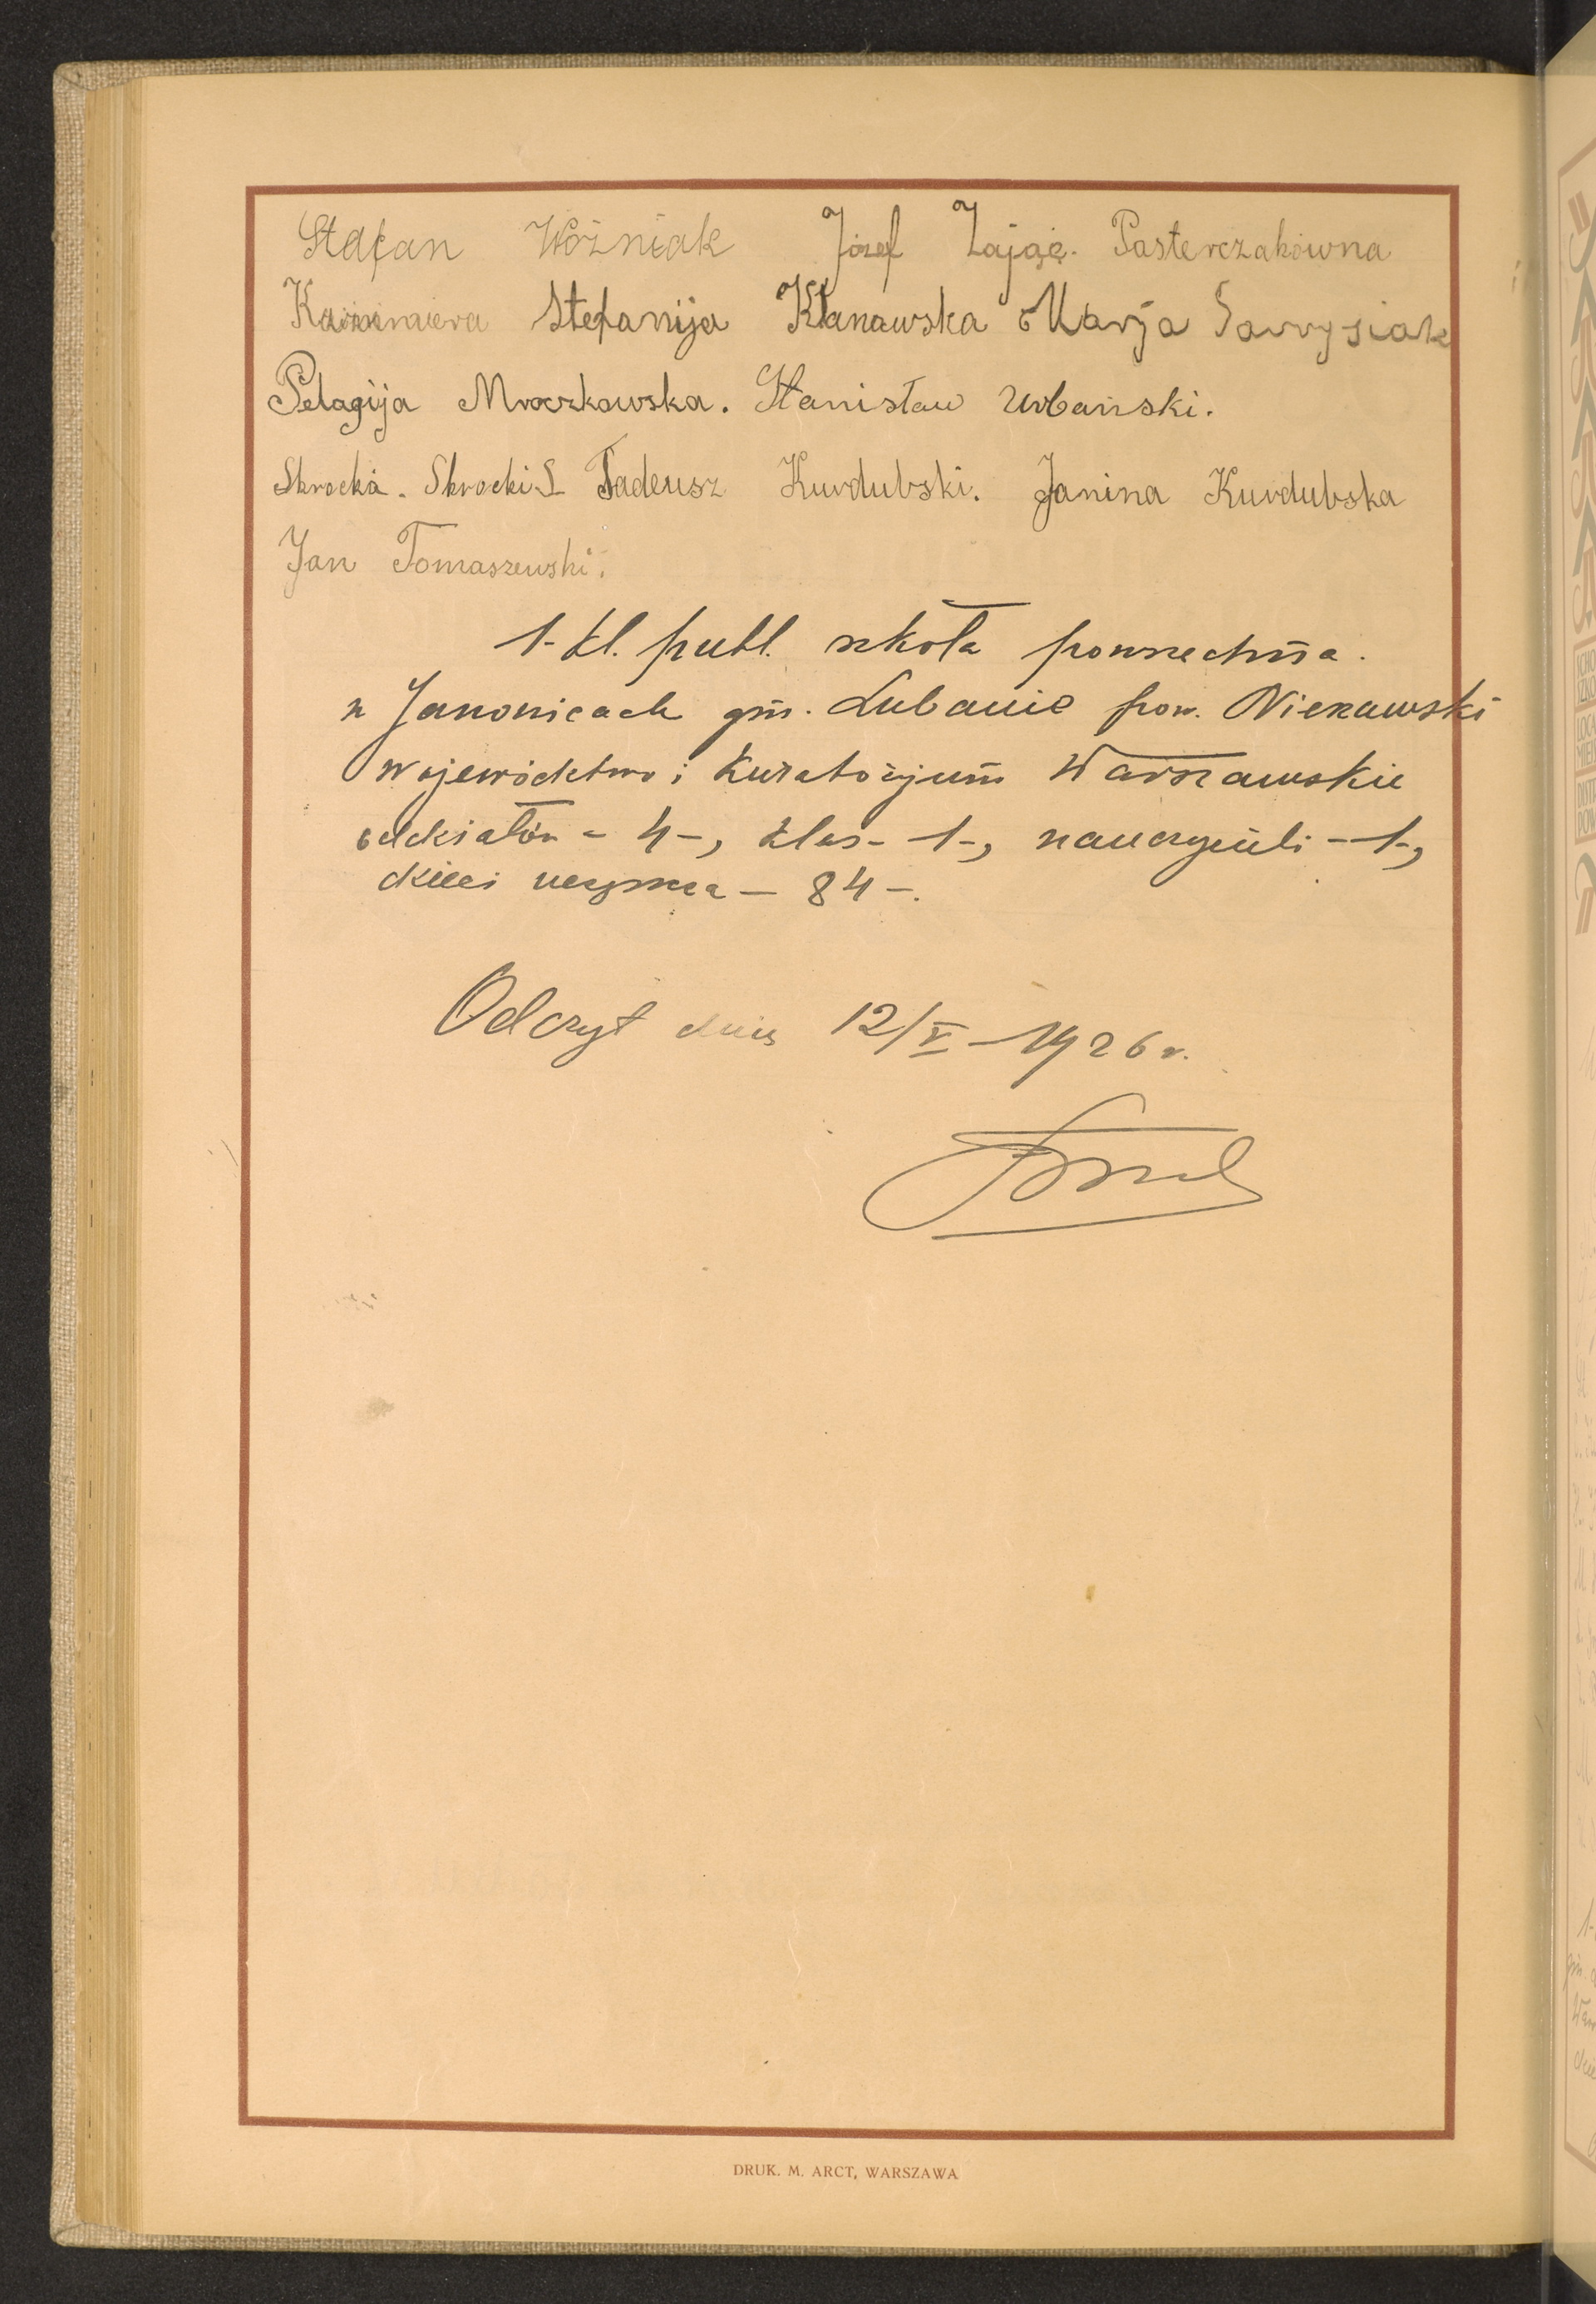 Stefan Woźniak Józef Zając. Pasterczakówna
Kazimiera Stefanija Kłanawska Marja Gavrysiak
Pelagija Mroczkowska. Stanisław Urbański.
Skrocka. Skrocki S Tadeusz Kurdubski. Janina Kurdubska
Jan Tomaszewski.
1-kl. publ. szkoła powszechna.
w Janowicach gm. Lubanie pow. Nieszawski
województwo i Kuratorjum Warszawskie
oddziałów - 4-, klas- 1-, nauczycieli - 1-,
dzieci uczęszcza - 84 -.
Odczyt dnia 12/V - 1926 r.
DRUK. M. ARCT, WARSZAWA